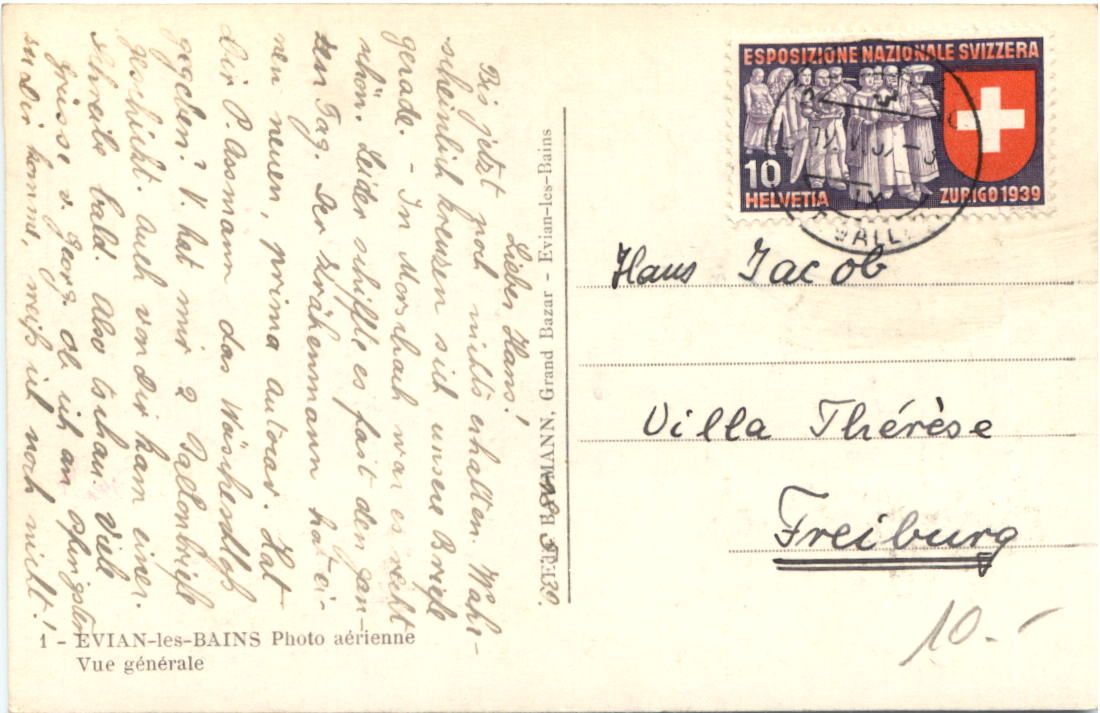 ESPOSIZIONE NAZIONALE SVIZZERA
10
HELVETIA
ZURIGO 1939
Lieber Hans!
Bis jetzt noch nichts erhalten. Wahr-
scheinlich kreuzen sich unsere Briefe
gerade. - In Morschach war es recht
schön. Leider schiffte es fast den gan-
zen Tag. Der Krähenmann hat ei-
nen neuen, prima Autocar. Hat
Dir P. Assmann das Wäscheschloß
gegeben? V. hat mir 2 Ballonbriefe
geschickt. Auch von Dir kam einer.
Schreibe bald. Also tschau. Viele
Grüsse v. Georg. Ob ich an Pfingsten
zu Dir komme, weiß ich noch nicht!
MANN, Grand Bazar - Evian-les-Bains
Hans Jacob
Villa Thérèse
Freiburg
10.-
1 - EVIAN-les-BAINS Photo aérienne
Vue générale